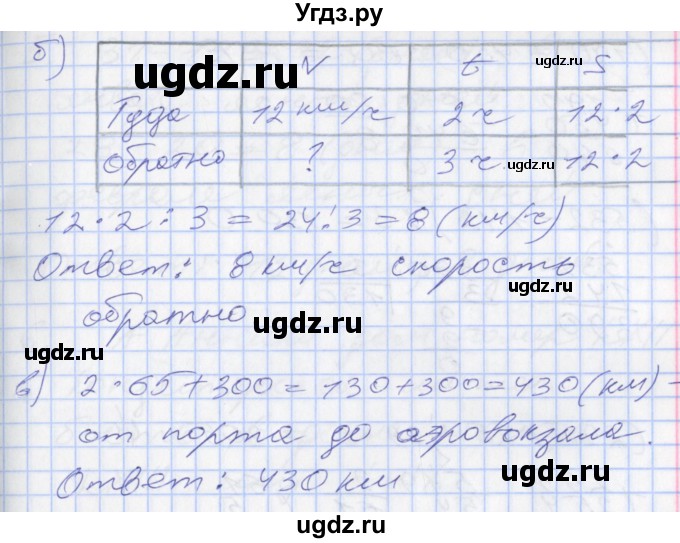 Угдз.ру
б)
ugdz.ru v t S
Туда 12 км/ч 2 ч 12·2
обратно ? 3 ч ugdz.ru 12·2
12·2:3 = 24:3 = 8 (км/ч)
Ответ: 8 км/ч скорость
ugdz.ru
обратно ugdz.ru
ugdz.ru
в) 2·65+300 = 130+300 = 430 (км) -
от порта до аэровокзала.
ugdz.ru ugdz.ru
Ответ: 430 км
ugdz.ru